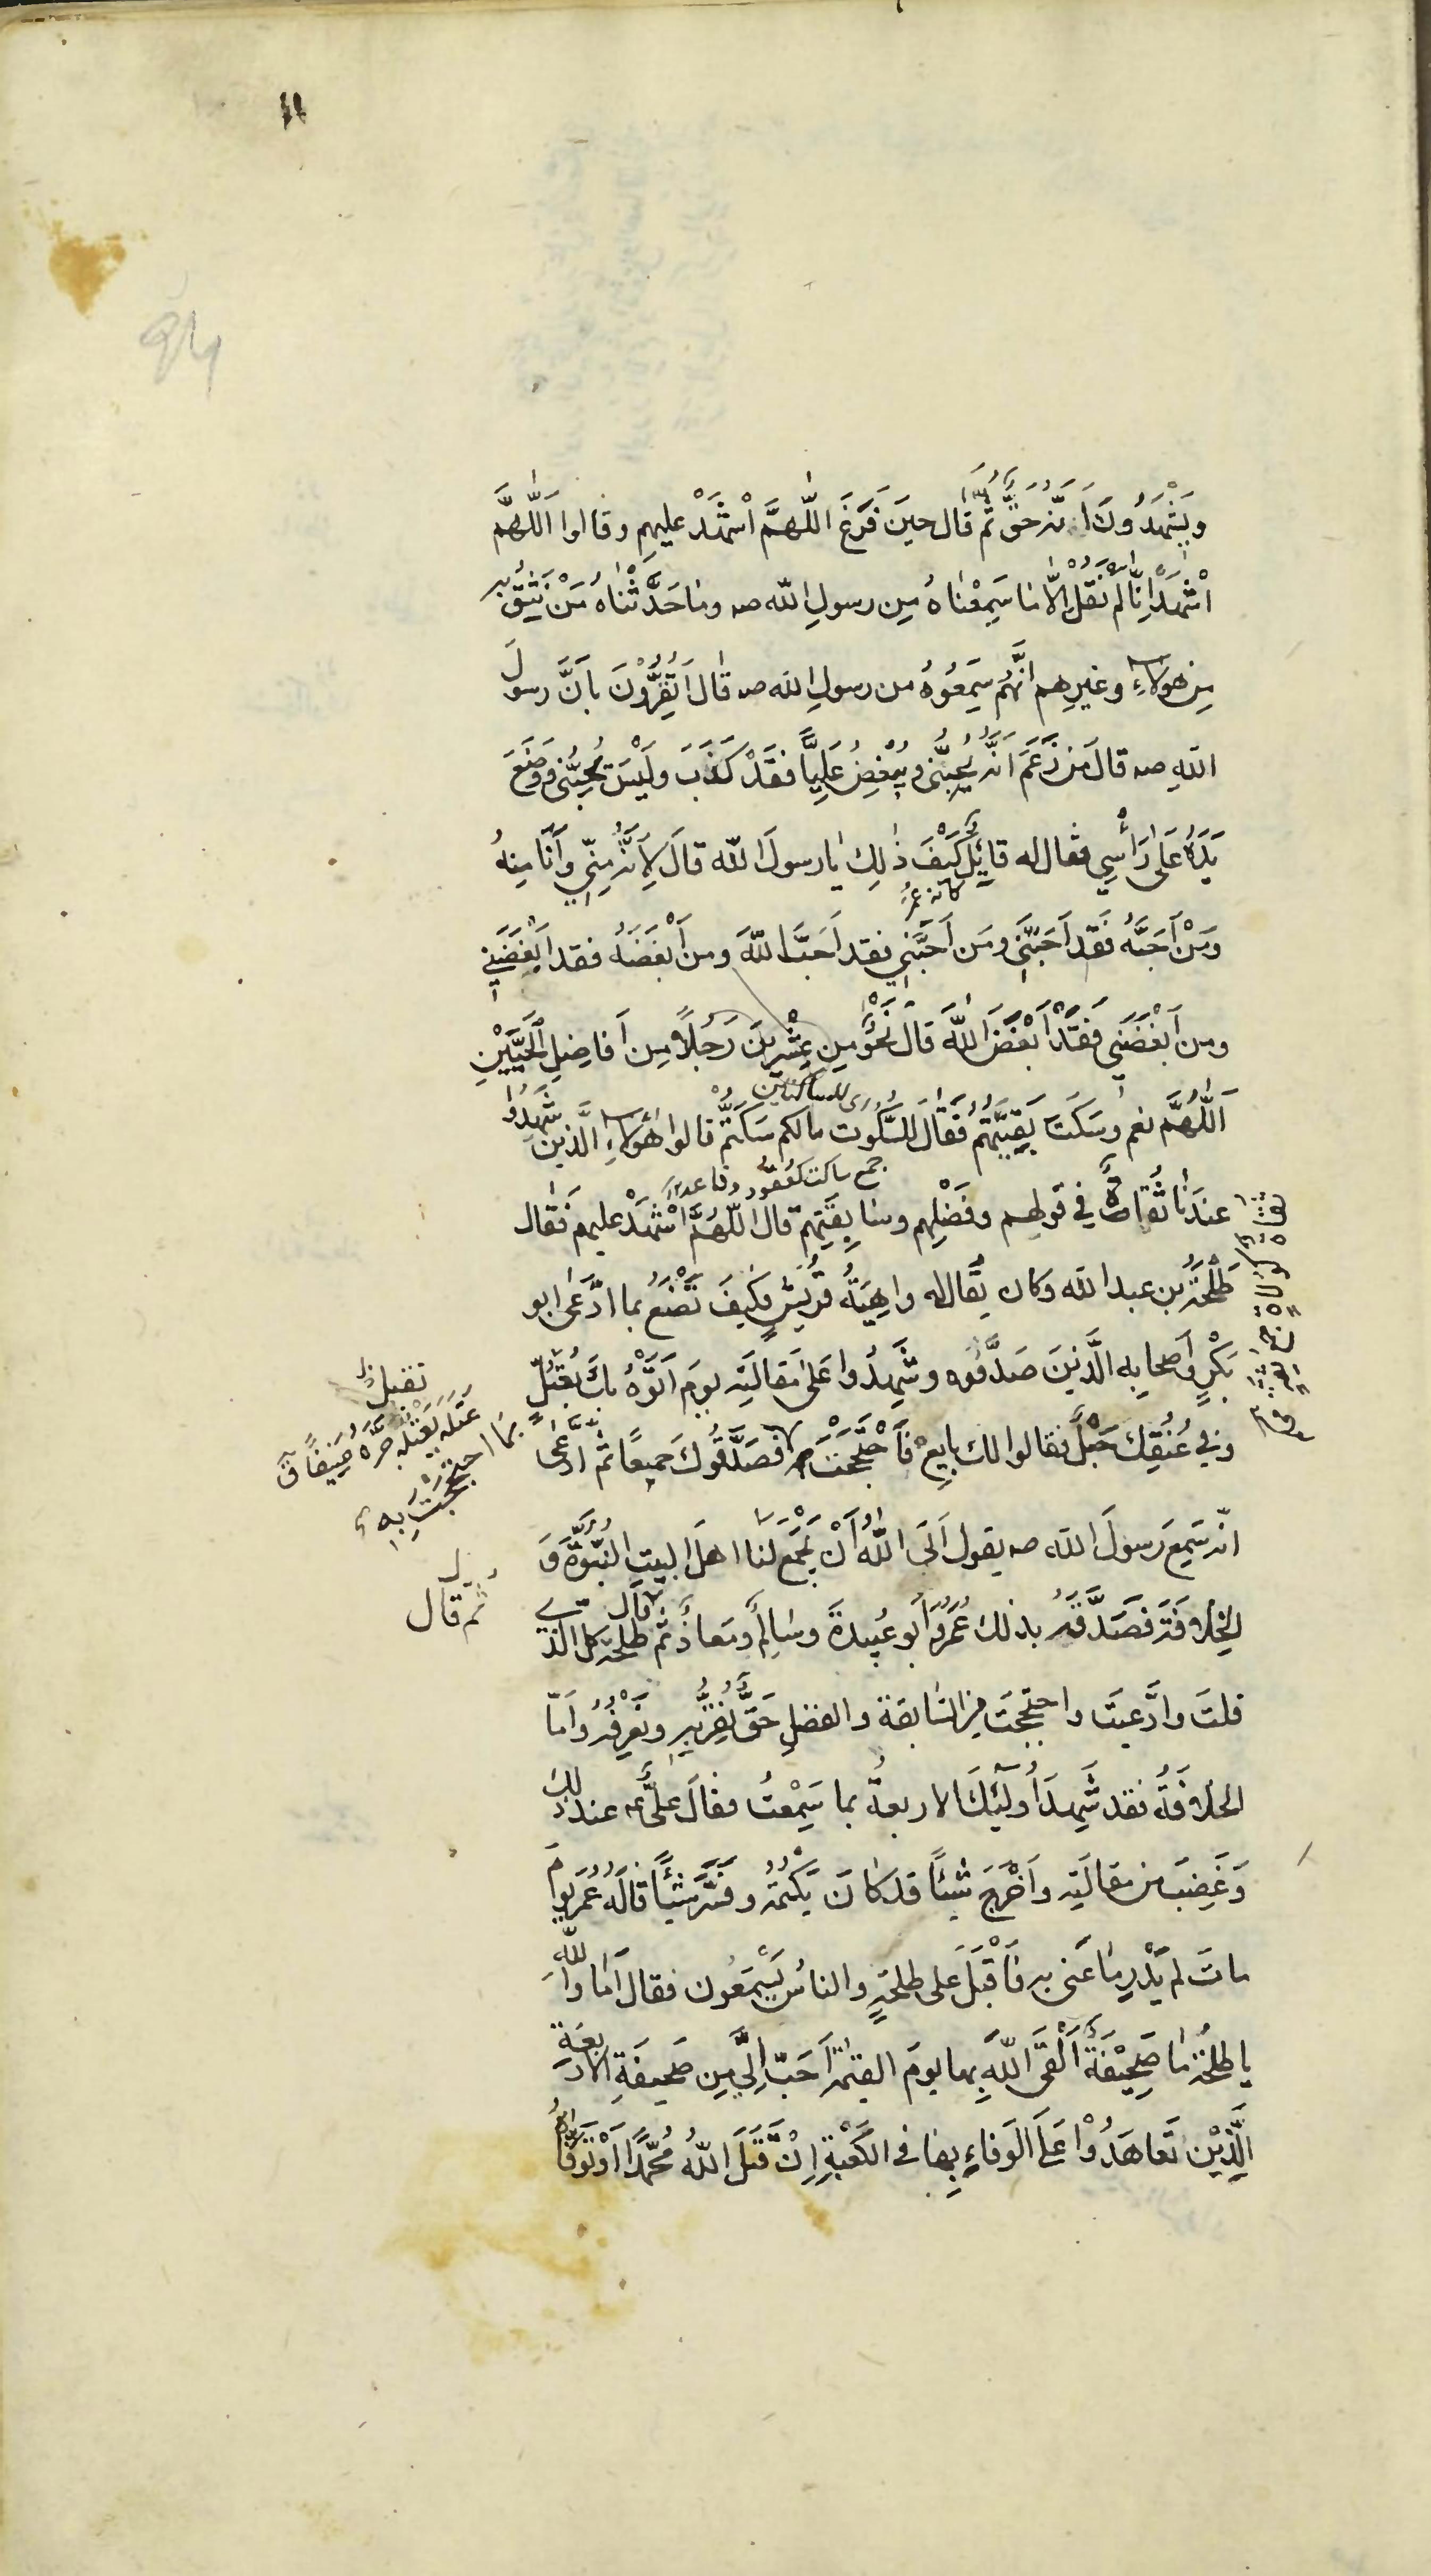 ١١
وَيَشْهَدُونَ أَنَّهُ حَقٌّ ثُمَّ قال حينَ فَرَغَ اللّٰهمَّ اشْهَدْ عليهم وقالوا اَللّٰهمَّ
اشْهَدْ اِنَّا لَمْ نَقُلْ اِلّا مٰا سَمِعْنٰاهُ مِن رسولِ الله صه ومٰا حَدَّثْنٰاهُ مَنْ نَثِقُ به
مِن هٰؤلاءِ وغيرِهم اَنَّهُم سَمِعُوهُ من رسولِ الله صه قٰالَ اَتُقِرُّوْنَ بأَنَّ رسولَ
اللهِ صه قالَ مَن زَعَمَ اَنَّهُ يُحِبُّنِي وَيُبْغِضُ عَلِيًّا فقَدْ كَذَبَ ولَيْسَ يُحِبُّنِي وَوَضَعَ
يَدَهُ عَلىٰ رَأْسِي فقال له قايِلٌ كَيْفَ ذٰلِكَ يٰا رسولَ الله قالَ لِاَنَّهُ مِنّي وأَنَا مِنهُ
كانه عمر
وَمَنْ أَحَبَّهُ فَقَد اَحَبَّنِي ومَن اَحَبَّنِي فقد اَحَبَّ اللهَ ومن أَبْغَضَهُ فقد اَبْغَضَنِي
ومن أَبْغَضَنِي فَقَدْ اَبْغَضَ اللهَ قالَ نَحْوٌ مِن عِشْرِينَ رَجُلًا مِن اَفاضِلِ الْحَيَّيْنِ
ای للساكتين
اَللّٰهُمَّ نعم وسَكَتَ بَقِيَّتُهُم فَقٰالَ لِلسُّكُوت مالكم سَكَتُّمْ قالوا هٰؤلاءِ الَّذينَ شَهِدُوا
جمع ساكت كقعود وقاعد
عندَنٰا ثُقاةٌ في قولِهم وفَضْلِهم وسٰابِقَتِهم قال اللّٰهُمَّ اشْهَدْ عليهم فَقٰال
طَلْحَةُ بن عبدالله وكان يُقال له داهِيَةُ قُرَيْشٍ فكَيْفَ تَصْنَعُ بما ادَّعىٰ ابو
بَكْرٍ وأَصحابِه الَّذينَ صَدَّقُوه وشَهِدُوا عَلىٰ مَقالَتِه يومَ اَتَوْهُ بِكَ بِعُتُلٍّ
تقبل ظ
عَتَلَه يَعْتِلُه جَرَّه عنيفًا ق
وفي عُنُقِكَ حَبْلٌ فقالوا لك بايِعْ فَاحْتَجَجْتَ فصَدَّقُوكَ جميعًا ثم ادَّعىٰ
بما احتججت به
انّه سَمِعَ رَسولَ الله صه يقول اَبَى اللهُ أَنْ يَجْمَعَ لَنا اهلَ البيتِ النُّبُوَّةَ وَ
الخِلافَةَ فصَدَّقَهُ بذلك عُمَرُ وَأَبو عُبَيدةَ وسٰالِمٌ ومَعاذٌ ثمّ قال طلحةُ كل الذي
ثم قال
قلتَ وادَّعيتَ واحتججتَ مِن السّابقة والفضلِ حَقٌّ نُقِرُّ بِهِ ونَعْرِفُهُ وأَمّا
الخلافَةُ فقد شَهِدَ أُولٰئِكَ الاربعةُ بما سَمِعْتَ فقالَ عَلِيٌّ عه عند ذلك
وَغَضِبَ من مقالَتِه وأَخْرَجَ شَيْئًا قد كٰانَ يَكْتُمُهُ وفَسَّرَ شَيْئًا قالَهُ عُمَرُ يومَ
ماتَ لم يُدْرَ مٰا عَنى به فَأَقْبَلَ على طلحةَ والناسُ يَسْمَعُون فقالَ اَمٰا واللّٰهِ
يا طلحةُ مٰا صَحِيْفَةٌ أَلْقَى اللهَ بها يومَ القيٰمةِ اَحَبُّ اِلَيَّ مِن صَحيفَةِ الاربعَةِ
الَّذِيْن تَعاهَدُوْا عَلَى الوَفاءِ بِهٰا في الكَعْبَةِ اِنْ قَتَلَ اللهُ مُحَمَّدًا اَوْ تَوَفّاهُ